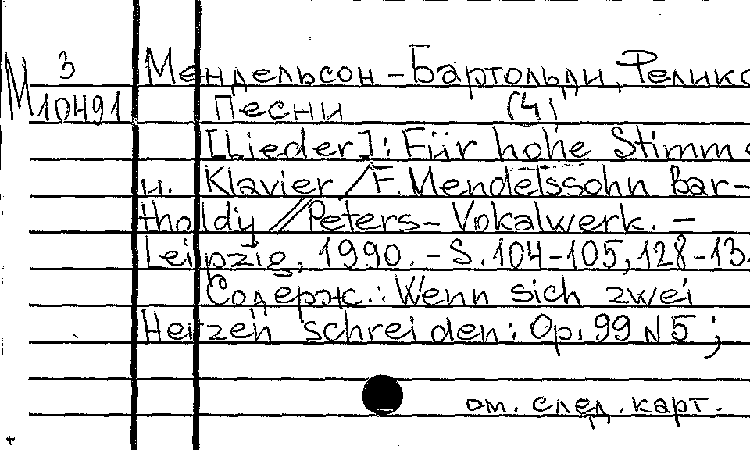 М 3
10491
Мендельсон-Бартольди, Феликс
Песни (4)
[Lieder]: Für hohe Stimme
u. Klavier / F. Mendelssohn Bar-
tholdy // Peters-Vokalwerk. –
Leipzig, 1990. – S. 104-105, 128-13
Содерж.: Wenn sich zwei
Herzen schreiden: Op. 99 N 5 ;
см. след. карт.